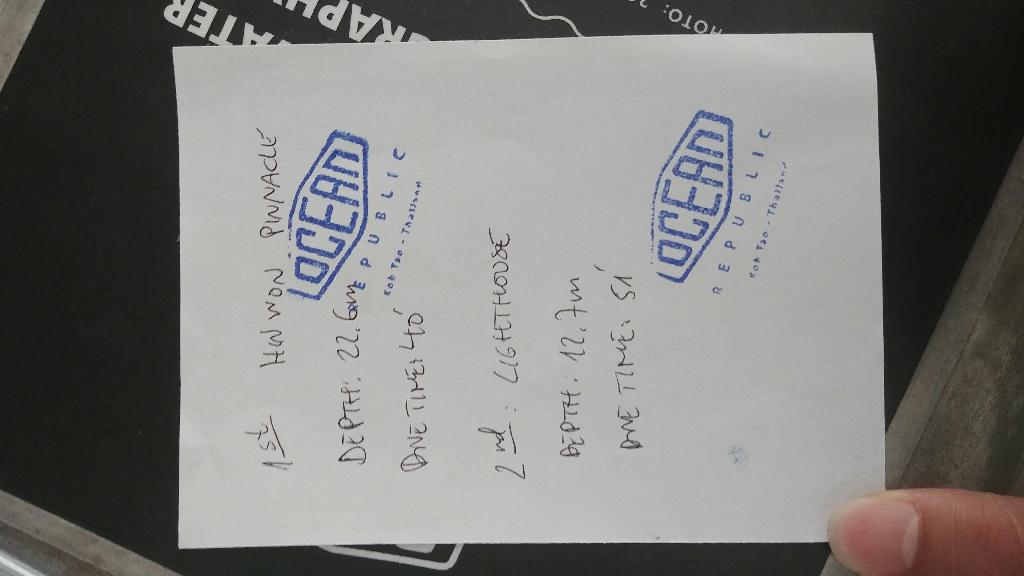 1st HIN WON PINNACLE
OCEAN
REPUBLIC
Koh Tao - Thailand
DEPTH: 22.6m
DIVE TIME: 40'
2nd: LIGHTHOUSE
DEPTH: 12.7m
DIVE TIME: 51'
OCEAN
REPUBLIC
Koh Tao - Thailand